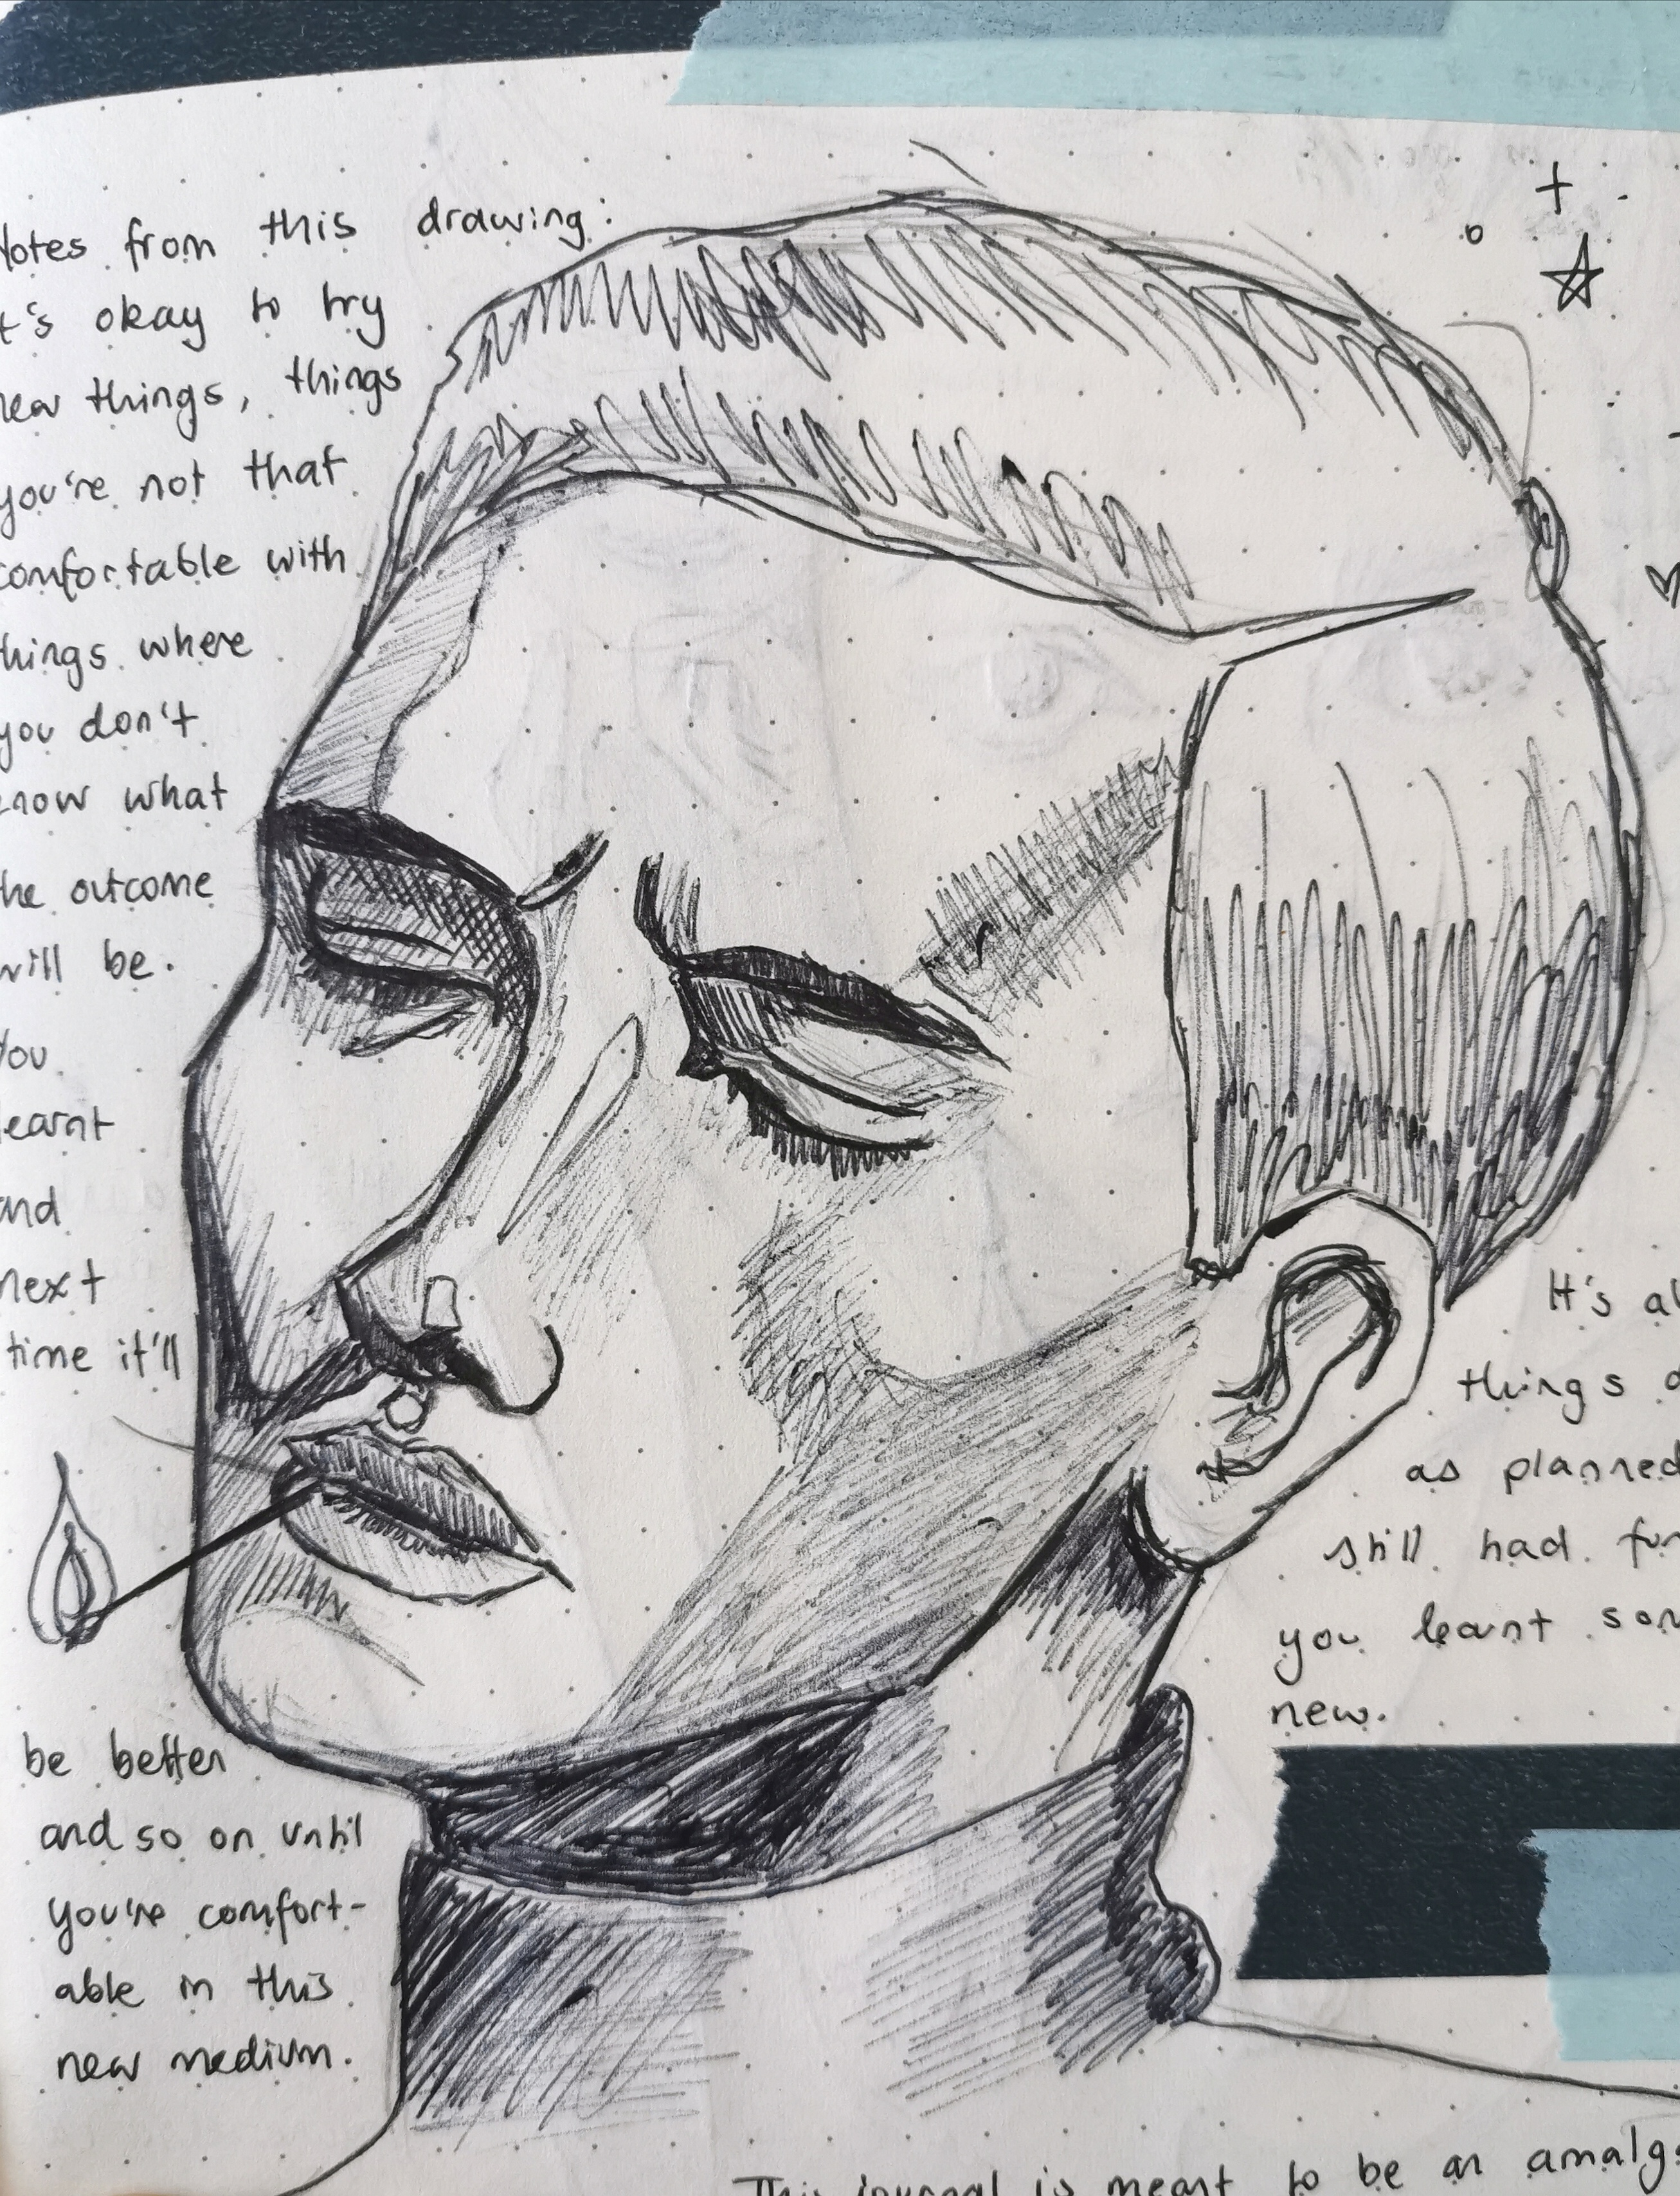 Notes from this drawing:
It's okay to try
new things, things
you're not that
comfortable with
things where
you don't
know what
the outcome
will be.
You
learnt
and
next
time it'll
be better
and so on until
you're comfort-
able in this
new medium.
It's al
things
as planned
still had fun
you learnt som
new.
This journal is meant to be an amalg